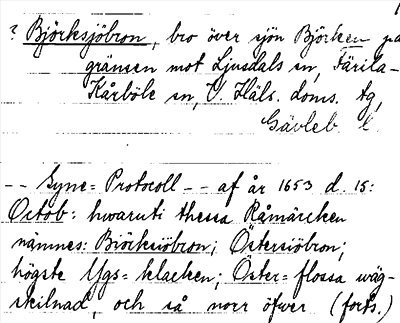 ? Björksjöbron, bro över sjön Björken på
gränsen mot Ljusdals sn, Färila-
Kårböle sn, V. Häls. doms. tg,
Gävleb. l.
-- Syne=Protocoll -- af år 1653 d. 15:
Octob: hwaruti thessa Råmärcken
nämnes: Biörksiöbron; Östersiöbron;
högste Ygs=klacken; Öster=flossa wäg-
skilnad, och så norr öfwer (forts.)